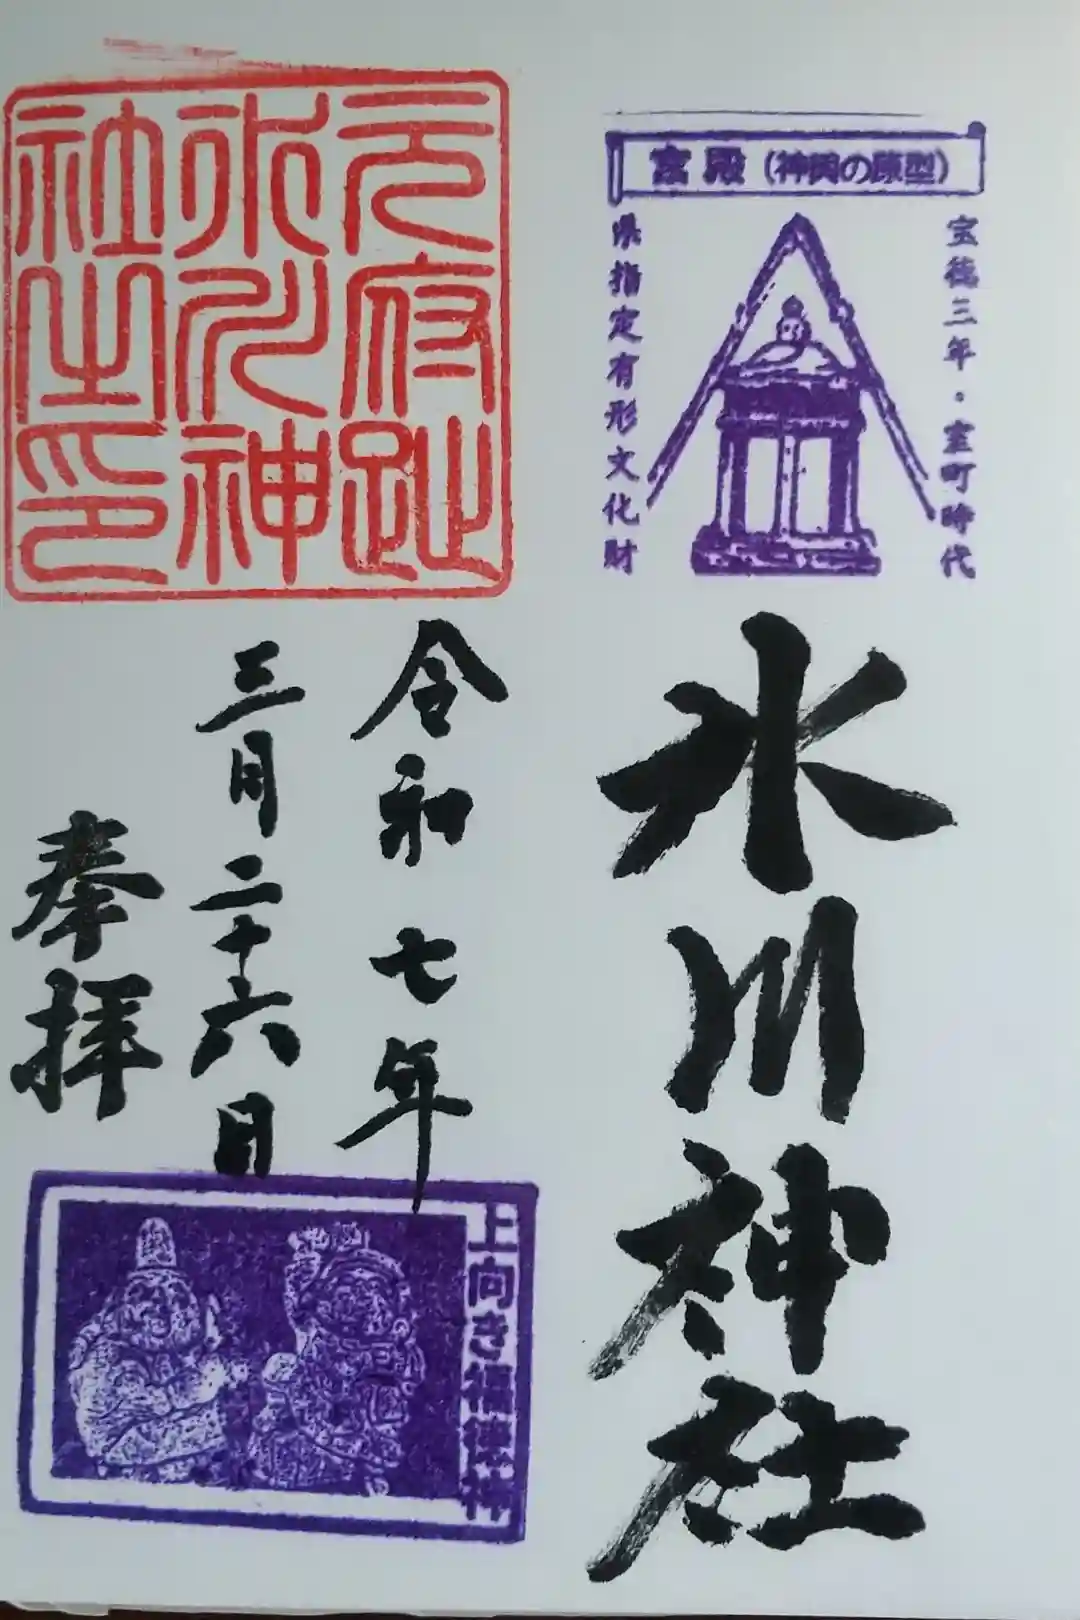 宮殿（神輿の原型）
宝徳三年・室町時代
県指定有形文化財
氷川神社
元府趾
氷川神
社之印
令和七年
三月二十六日
奉拝
上向き福